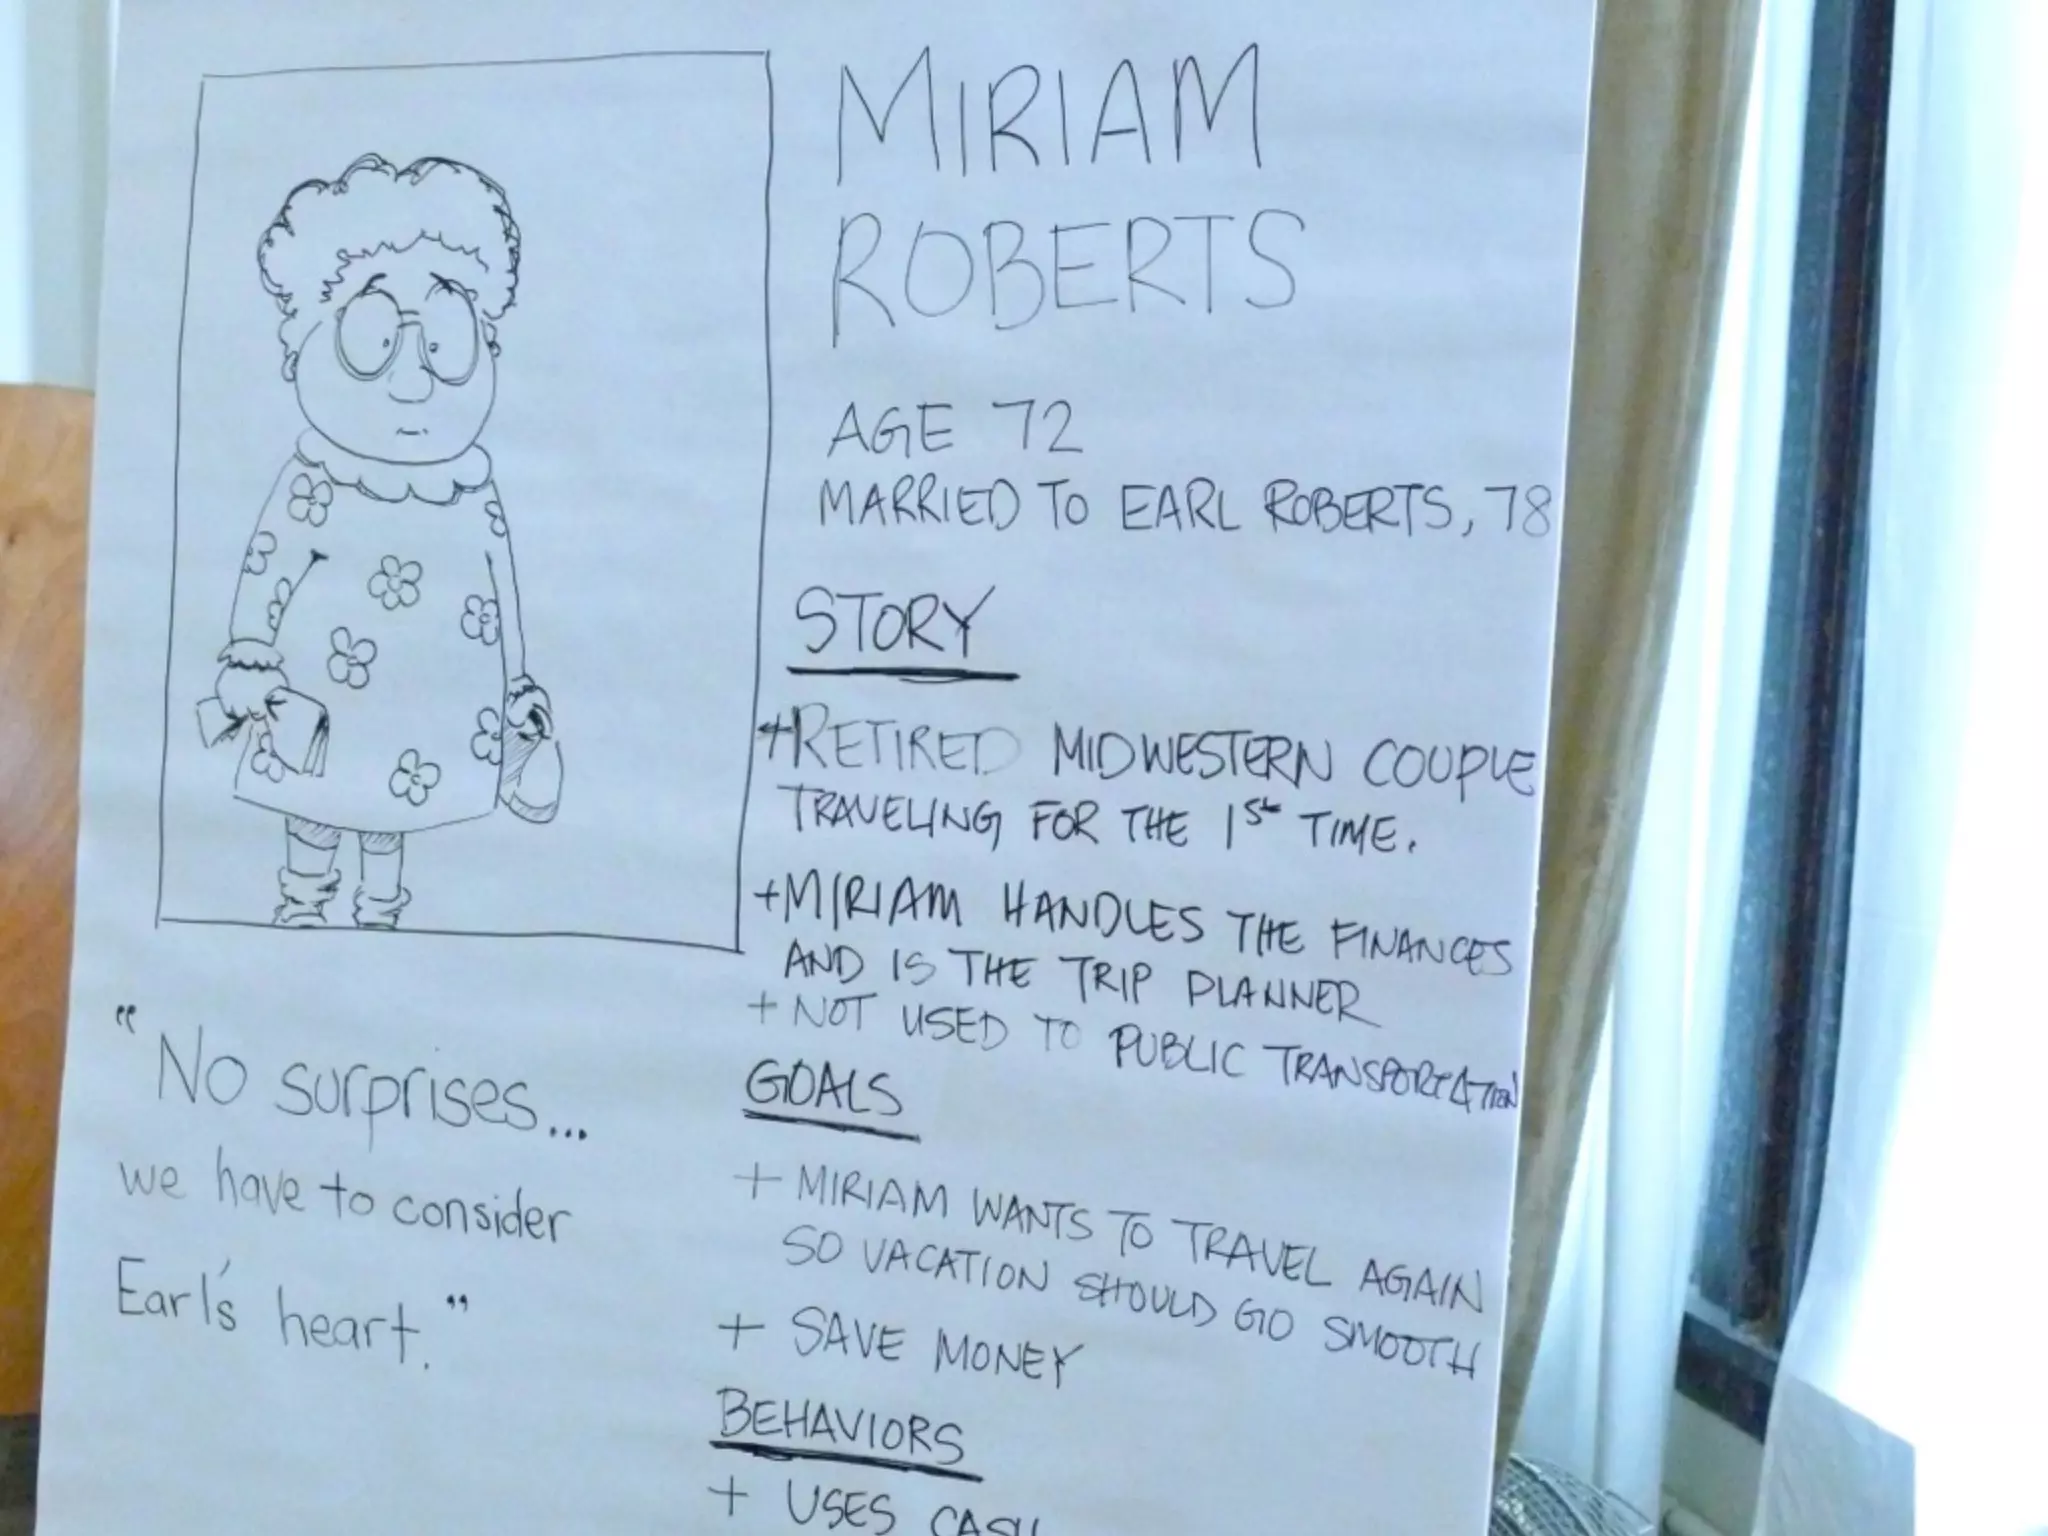 MIRIAM
ROBERTS
AGE 72
MARRIED TO EARL ROBERTS, 78
STORY
+ RETIRED MIDWESTERN COUPLE
TRAVELING FOR THE 1st TIME.
+ MIRIAM HANDLES THE FINANCES
AND IS THE TRIP PLANNER
+ NOT USED TO PUBLIC TRANSPORTATION
GOALS
+ MIRIAM WANTS TO TRAVEL AGAIN
SO VACATION SHOULD GO SMOOTH
+ SAVE MONEY
BEHAVIORS
+ USES CASH
"No surprises...
we have to consider
Earl's heart."